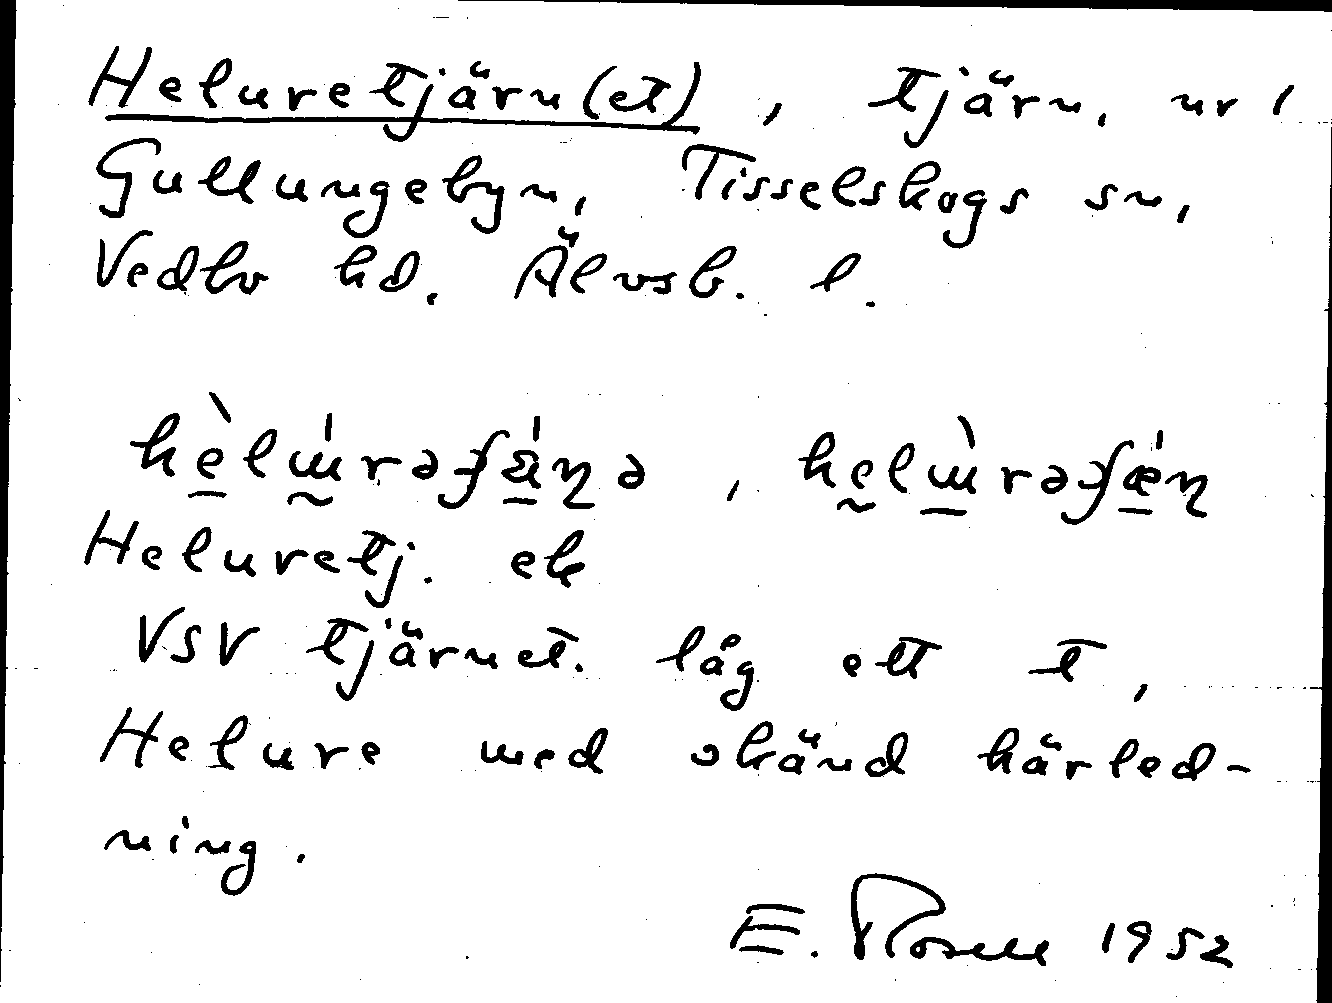 Heluretjärn(et), tjärn, nr 1
Gullungebyn, Tisselskogs sn,
Vedbo hd. Älvsb. l.
Heluretj. ek
VSV tjärnet. låg ett t,
Helure med okänd härled-
ning.
E. Rosell 1952